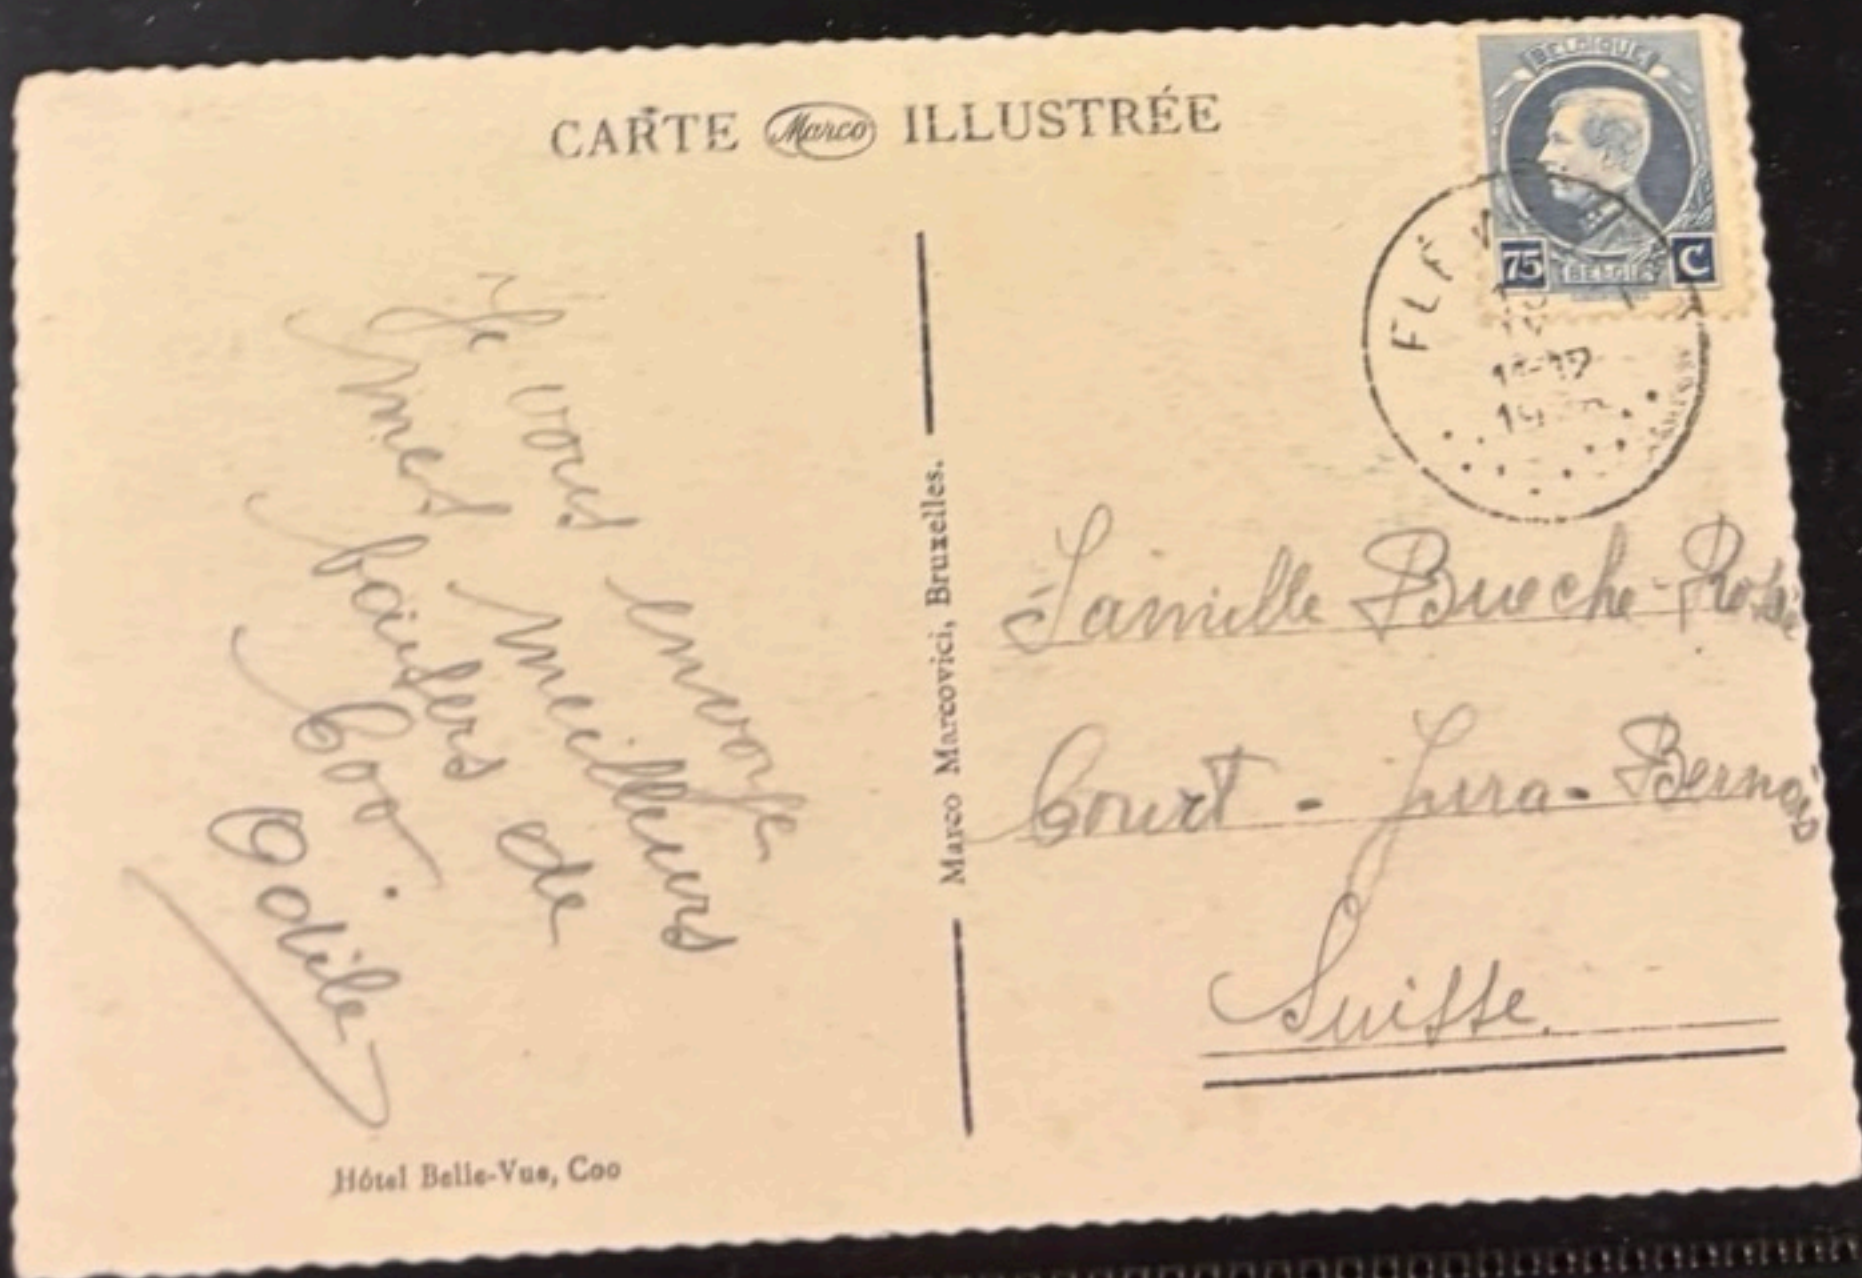 CARTE Marco ILLUSTRÉE
BELGIQUE
75 BELGIE C
FLÉ
Je vous envoye
mes meilleurs
baisers de
Coo.
Odile
Marco Marcovici, Bruxelles.
Famille Bueche-
Court - Jura - Bernois
Suisse.
Hôtel Belle-Vue, Coo